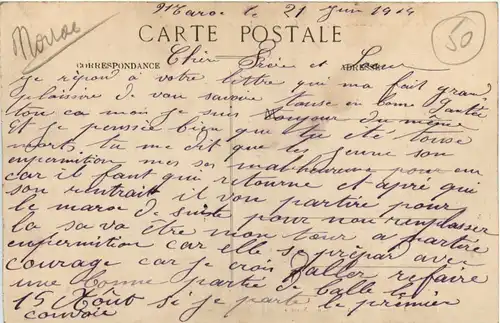 Maroc
Maroc le 21 Juin 1914
50
CARTE POSTALE
CORRESPONDANCE
ADRESSE
Chèr Frère et Soeur
je répond à votre lettre qui ma fait grand
plaisire d vou savoire touse en bone santée
tou ca moi je suis toujour du même
Et je pensée bien que tu été touse
morts, tu me dit que les jeune son
enpermition mes ses malheureuse pour eux
car il faut qui retourne et apré qui
son rentrait il von partire pour
le maroc d suite pour nou renplasser
la sa va être mon tour a partire
enpermition car elle se prépar avec
courage car je crois daller refaire
une bonne partie de balle le
15 Août si je parte le premier
convoie